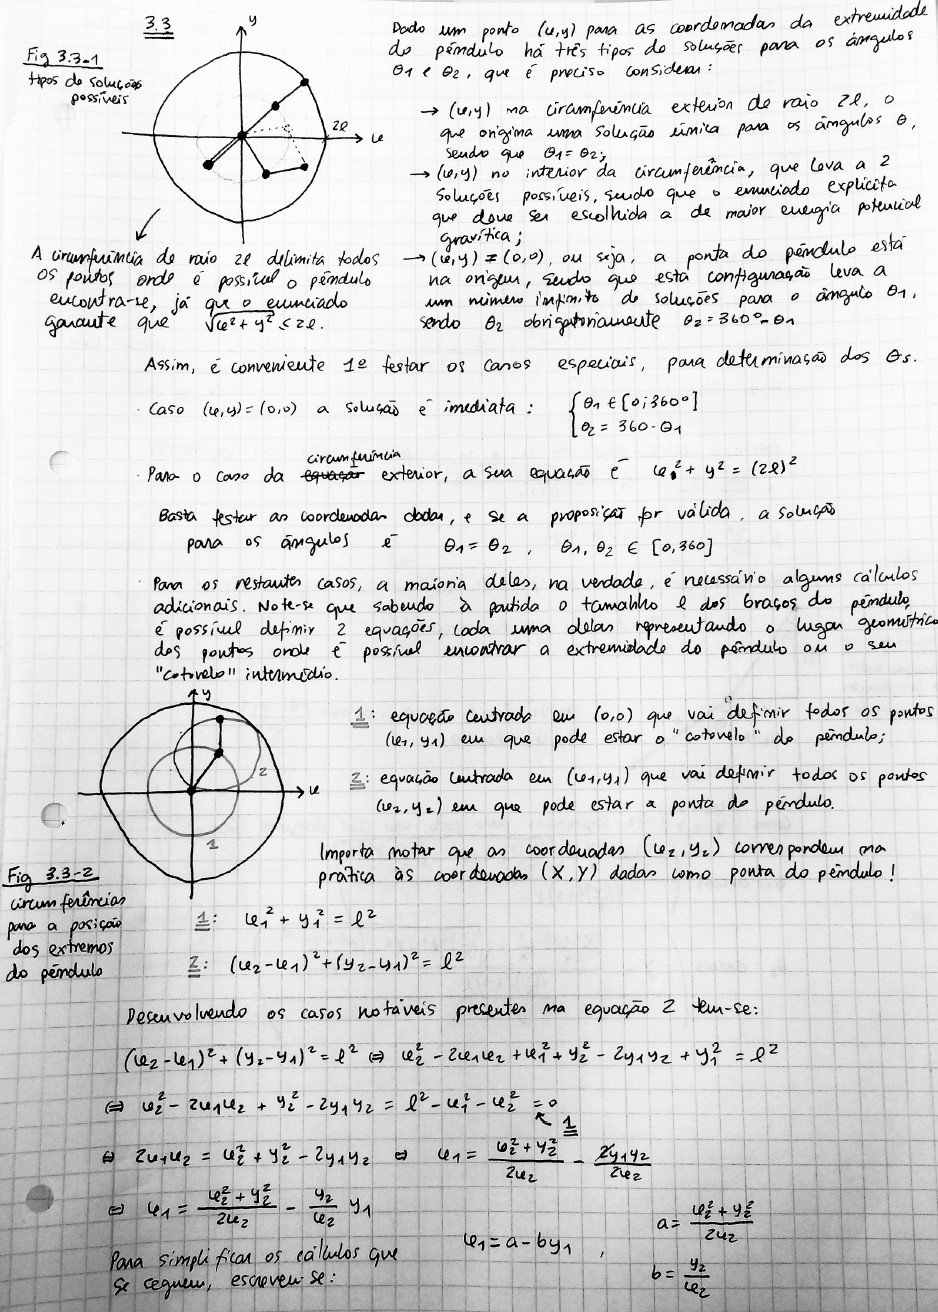 3.3
Fig 3.3-1
tipos de soluções
possíveis
y
2l
x
Dado um ponto (x,y) para as coordenadas da extremidade
do pêndulo há três tipos de soluções para os ângulos
θ1 e θ2, que é preciso considerar:
→ (x,y) na circunferência exterior de raio 2l, o
que origina uma solução única para os ângulos θ,
sendo que θ1=θ2;
→ (x,y) no interior da circunferência, que leva a 2
soluções possíveis, sendo que o enunciado explicita
que deve ser escolhida a de maior energia potencial
gravítica;
→ (x,y) = (0,0), ou seja, a ponta do pêndulo está
na origem, sendo que esta configuração leva a
um número infinito de soluções para o ângulo θ1,
sendo θ2 obrigatoriamente θ2=360º-θ1
A circunferência de raio 2l delimita todos
os pontos onde é possível o pêndulo
encontra-se, já que o enunciado
garante que √x²+y² ≤ 2l.
Assim, é conveniente 1º testar os casos especiais, para determinação dos θs.
· Caso (x,y)=(0,0) a solução é imediata: { θ1 ∈ [0;360º]
θ2 = 360-θ1
circunferência
· Para o caso da equação exterior, a sua equação é x² + y² = (2l)²
Basta testar as coordenadas dadas, e se a proposição for válida, a solução
para os ângulos é θ1 = θ2 , θ1, θ2 ∈ [0,360]
· Para os restantes casos, a maioria deles, na verdade, é necessário alguns cálculos
adicionais. Note-se que sabendo à partida o tamanho l dos braços do pêndulo,
é possível definir 2 equações, cada uma delas representando o lugar geométrico
dos pontos onde é possível encontrar a extremidade do pêndulo ou o seu
"cotovelo" intermédio.
y
x
2
1
1: equação centrada em (0,0) que vai definir todos os pontos
(x1, y1) em que pode estar o "cotovelo" do pêndulo;
2: equação centrada em (x1,y1) que vai definir todos os pontos
(x2, y2) em que pode estar a ponta do pêndulo.
Importa notar que as coordenadas (x2, y2) correspondem na
prática às coordenadas (X,Y) dadas como ponta do pêndulo!
Fig 3.3-2
circunferências
para a posição
dos extremos
do pêndulo
1: x1² + y1² = l²
2: (x2-x1)² + (y2-y1)² = l²
Desenvolvendo os casos notáveis presentes na equação 2 tem-se:
(x2-x1)² + (y2-y1)² = l² ⇔ x2² - 2x1x2 + x1² + y2² - 2y1y2 + y1² = l²
⇔ x2² - 2x1x2 + y2² - 2y1y2 = l² - x1² - x2² = 0
1
⇔ 2x1x2 = x2² + y2² - 2y1y2 ⇔ x1 = (x2² + y2²)/2x2 - 2y1y2/2x2
⇔ x1 = (x2² + y2²)/2x2 - y2/x2 y1
Para simplificar os cálculos que
se ceguem, escreveu-se:
x1 = a - by1 ,
a = (x2² + y2²)/2x2
b = y2/x2